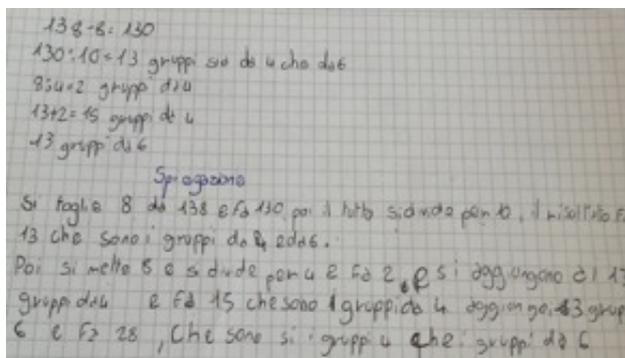 138-8=130
130:10=13 gruppi sia da 4 che da 6
8:4=2 gruppi da 4
13+2=15 gruppi da 4
13 gruppi da 6
Spiegazione
Si toglie 8 da 138 e fa 130, poi il tutto si divide per 10, il risultato fa
13 che sono i gruppi da 4 e da 6.
Poi si mette 8 e si divide per 4 e fa 2, e si aggiungono ai 13
gruppi da 4 e fa 15 che sono i gruppi da 4 aggiungo i 13 grup
6 e fa 28, Che sono si i gruppi 4 che i gruppi da 6